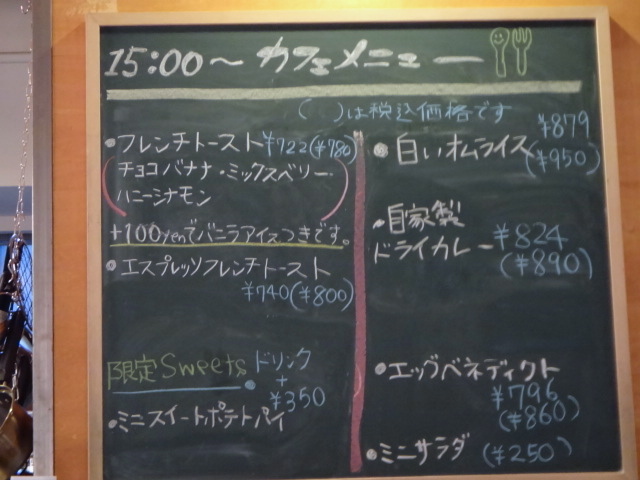 15:00～ カフェメニュー
( )は税込価格です
•フレンチトースト ¥722(¥780)
(チョコバナナ・ミックスベリー・
ハニーシナモン)
+100yenでバニラアイスつきです。
•エスプレッソフレンチトースト
¥740(¥800)
限定Sweets ドリンク
+
¥350
•ミニスイートポテトパイ
•白いオムライス ¥879
(¥950)
•自家製
ドライカレー ¥824
(¥890)
•エッグベネディクト
¥796
(¥860)
•ミニサラダ (¥250)